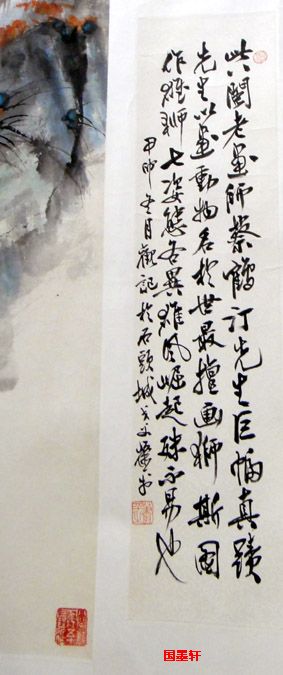 此閩老畫師蔡鶴汀先生巨幅真蹟
先生以畫動物名於世最擅画獅斯圖
作雄獅七姿態各異雄風崛起殊不易也
甲申月觀記於石頭城
国墨轩